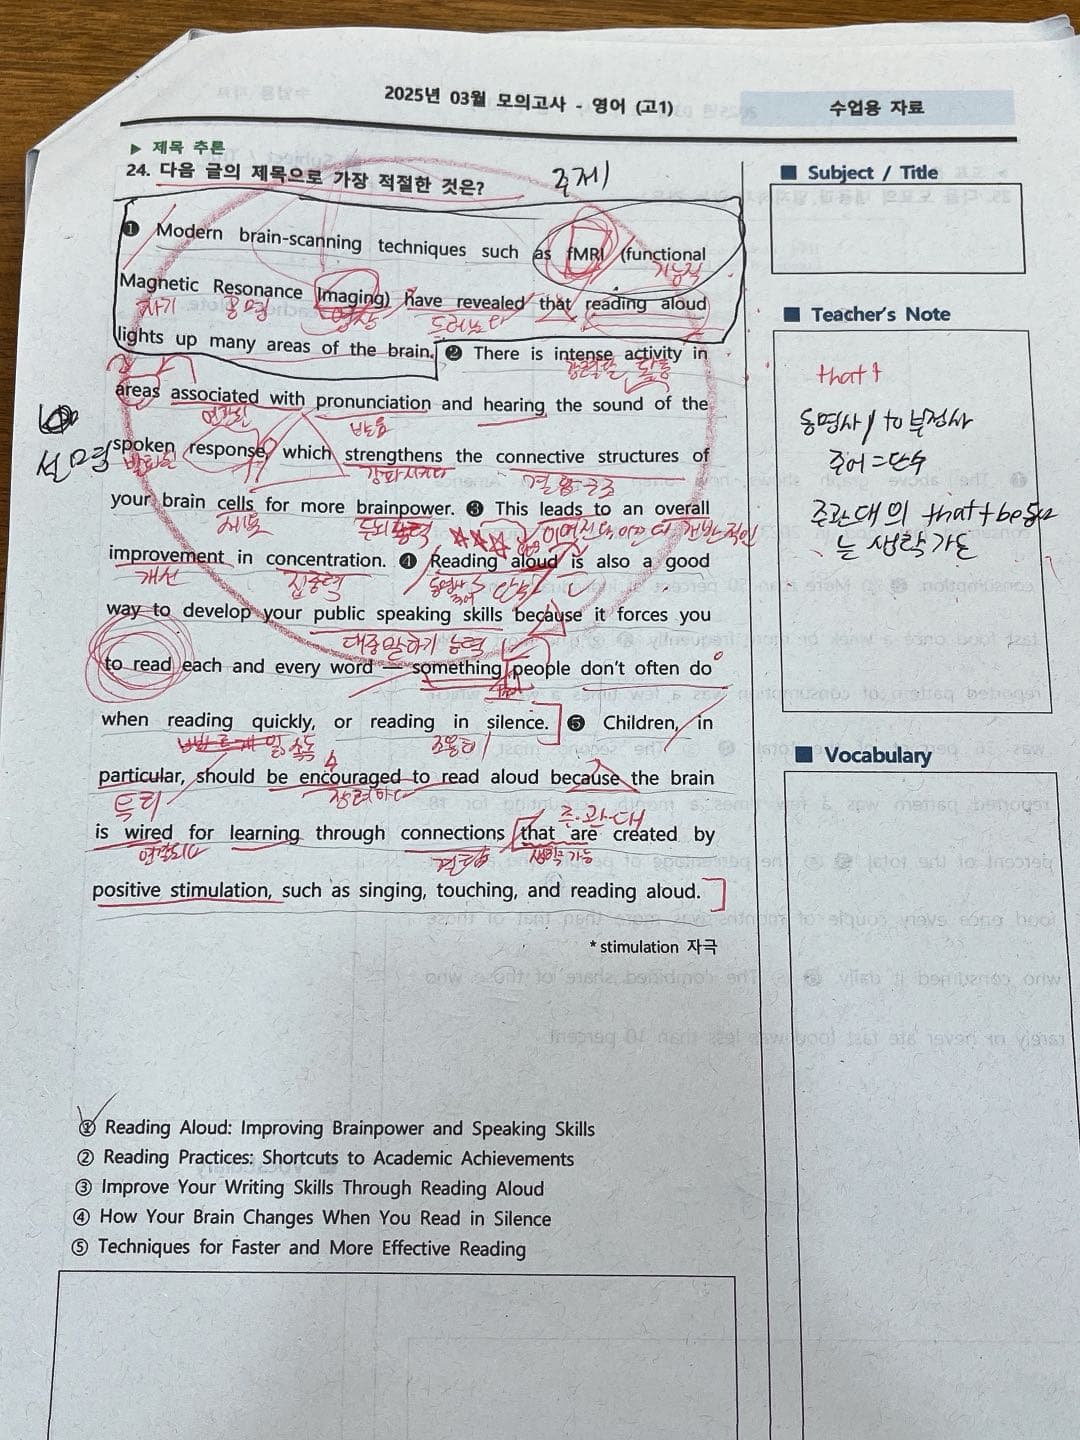 2025년 03월 모의고사 - 영어 (고1)
수업용 자료
▶ 제목 추론
24. 다음 글의 제목으로 가장 적절한 것은?
주제
❶ Modern brain-scanning techniques such as fMRI (functional
기능적
Magnetic Resonance Imaging) have revealed that reading aloud
자기 공명 영상 드러나다
lights up many areas of the brain. ❷ There is intense activity in
강력한 활동
areas associated with pronunciation and hearing the sound of the
연관된 발음
설명
spoken response, which strengthens the connective structures of
강화시키다 결합 구조
your brain cells for more brainpower. ❸ This leads to an overall
세포 두뇌 능력 이어진다 전반적인
improvement in concentration. ❹ Reading aloud is also a good
개선 집중력 동명사 주어 단수
way to develop your public speaking skills because it forces you
대중말하기 능력
to read each and every word — something people don't often do
when reading quickly, or reading in silence. ❺ Children, in
빠르게 읽 속독 조용히
particular, should be encouraged to read aloud because the brain
특히 장려하다
is wired for learning through connections that are created by
연결되다 주·관·대 연결 생략 가능
positive stimulation, such as singing, touching, and reading aloud.
* stimulation 자극
① Reading Aloud: Improving Brainpower and Speaking Skills
② Reading Practices: Shortcuts to Academic Achievements
③ Improve Your Writing Skills Through Reading Aloud
④ How Your Brain Changes When You Read in Silence
⑤ Techniques for Faster and More Effective Reading
■ Subject / Title
■ Teacher's Note
that
동명사 / to 부정사
주어 = 단수
주관대의 that + be동사
는 생략 가능
■ Vocabulary